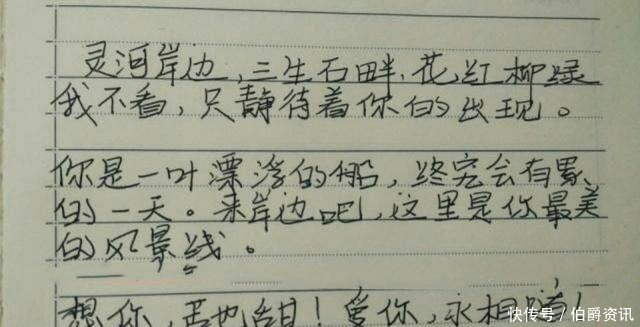 灵河岸边,三生石畔,花红柳绿
我不看,只静待着你的出现。
你是一叶漂浮的船,终究会有累
的一天。来岸边吧,这里是你最美
的风景线。
想你,苦也甜!爱你,永相随!
快传号/伯爵资讯